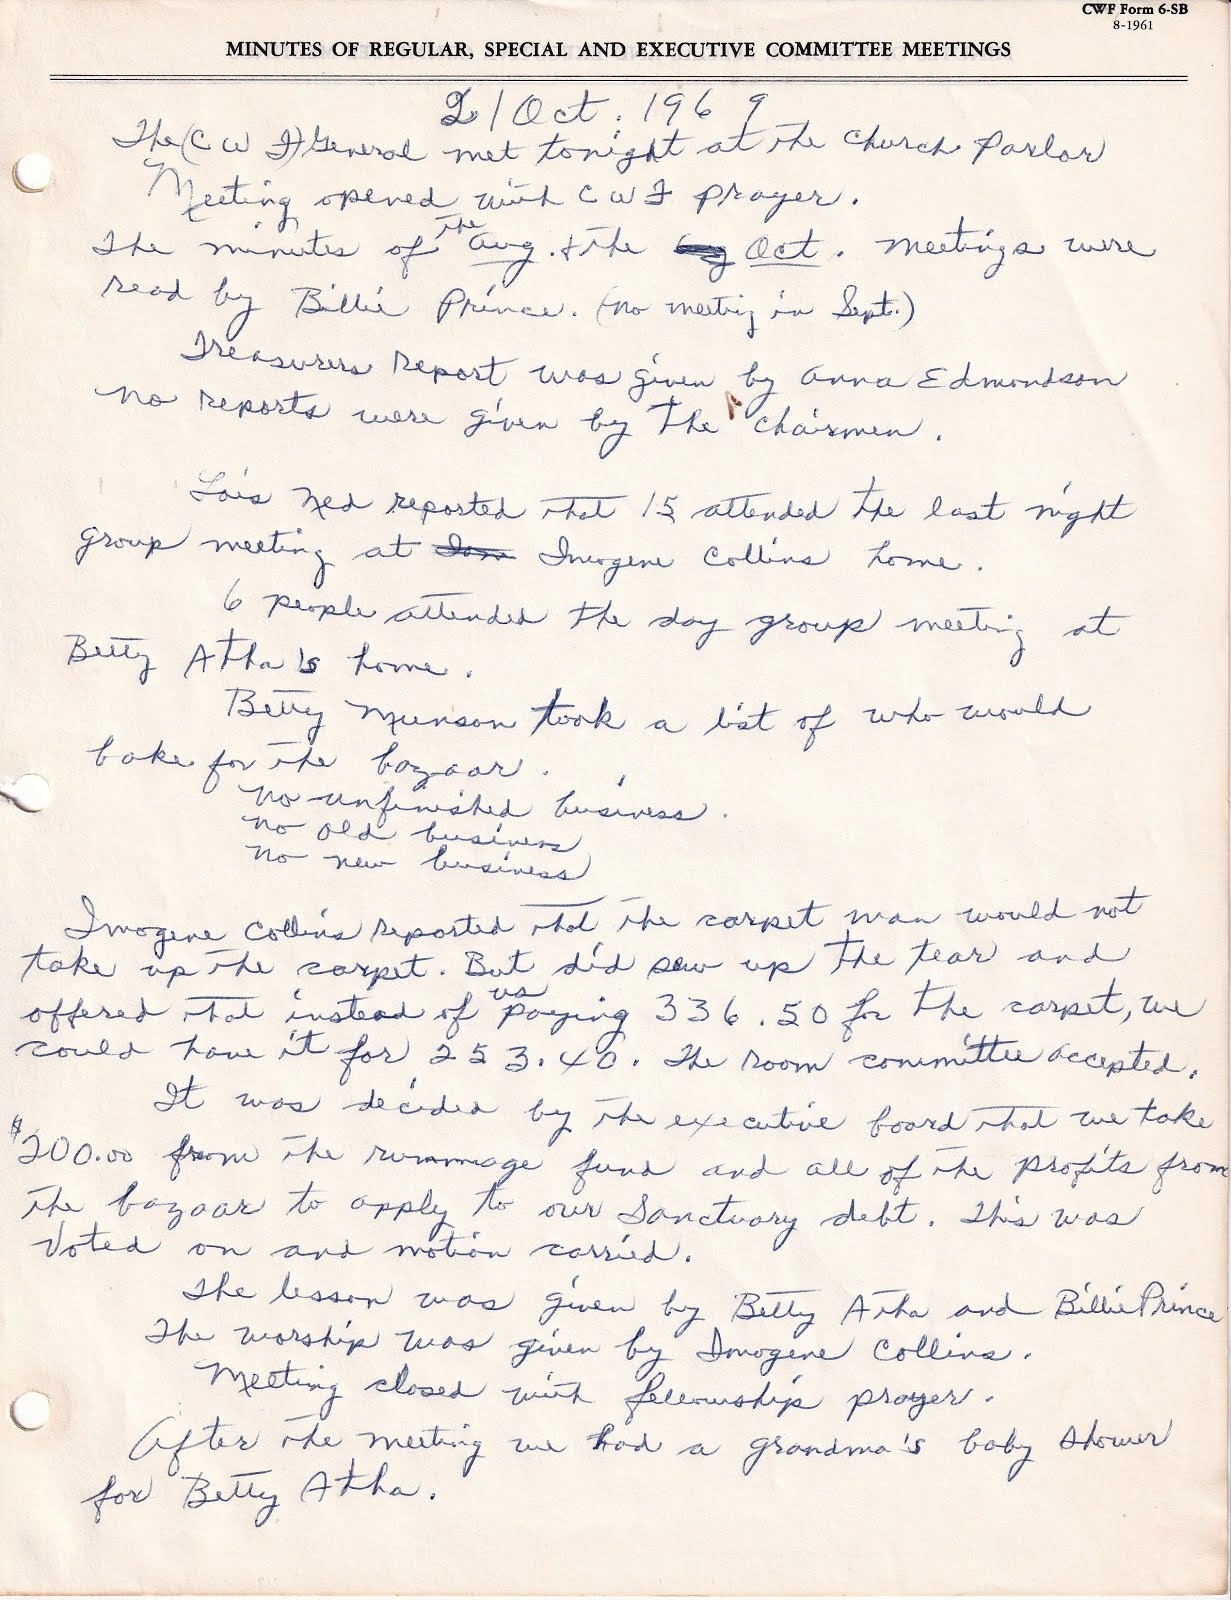 CWF Form 6-SB
8-1961
MINUTES OF REGULAR, SPECIAL AND EXECUTIVE COMMITTEE MEETINGS
21 Oct. 1969
The (CWF) General met tonight at the Church Parlor
Meeting opened with CWF prayer.
The minutes of the Aug. & the Oct. meetings were
read by Billie Prince. (no meetig in Sept.)
Treasurers report was given by Anna Edmondson
No reports were given by the chairmen.
Lois Ned reported that 15 attended the last night
group meeting at Imogene Collins home.
6 people attended the day group meeting at
Betty Atha's home.
Betty Munson took a list of who would
bake for the bazaar.
No unfinished business.
No old business
No new business
Imogene Collins reported that the carpet man would not
take up the carpet. But did sew up the tear and
offered that instead of us paying 336.50 for the carpet, we
could have it for 253.40. The room committee accepted.
It was decided by the executive board that we take
$200.00 from the rummage fund and all of the profits from
the bazaar to apply to our Sanctuary debt. This was
Voted on and motion carried.
The lesson was given by Betty Atha and Billie Prince
The worship was given by Imogene Collins.
Meeting closed with fellowship prayer.
After the meeting we had a grandma's baby shower
for Betty Atha.